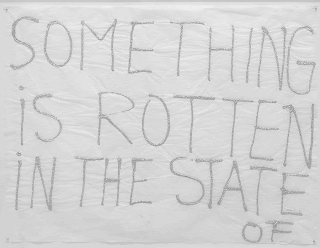 SOMETHING
iS ROTTEN
iN THE STATE
OF